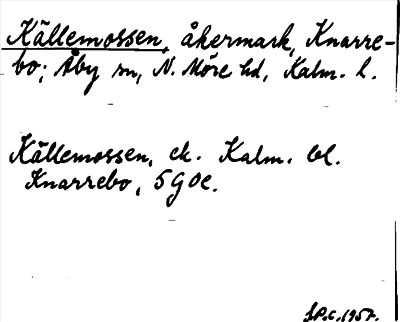 Källemossen, åkermark, Knarre-
bo; Åby sn, N. Möre hd, Kalm. l.
Källemossen, ek. Kalm. bl.
Knarrebo, 5G0e.
1957.